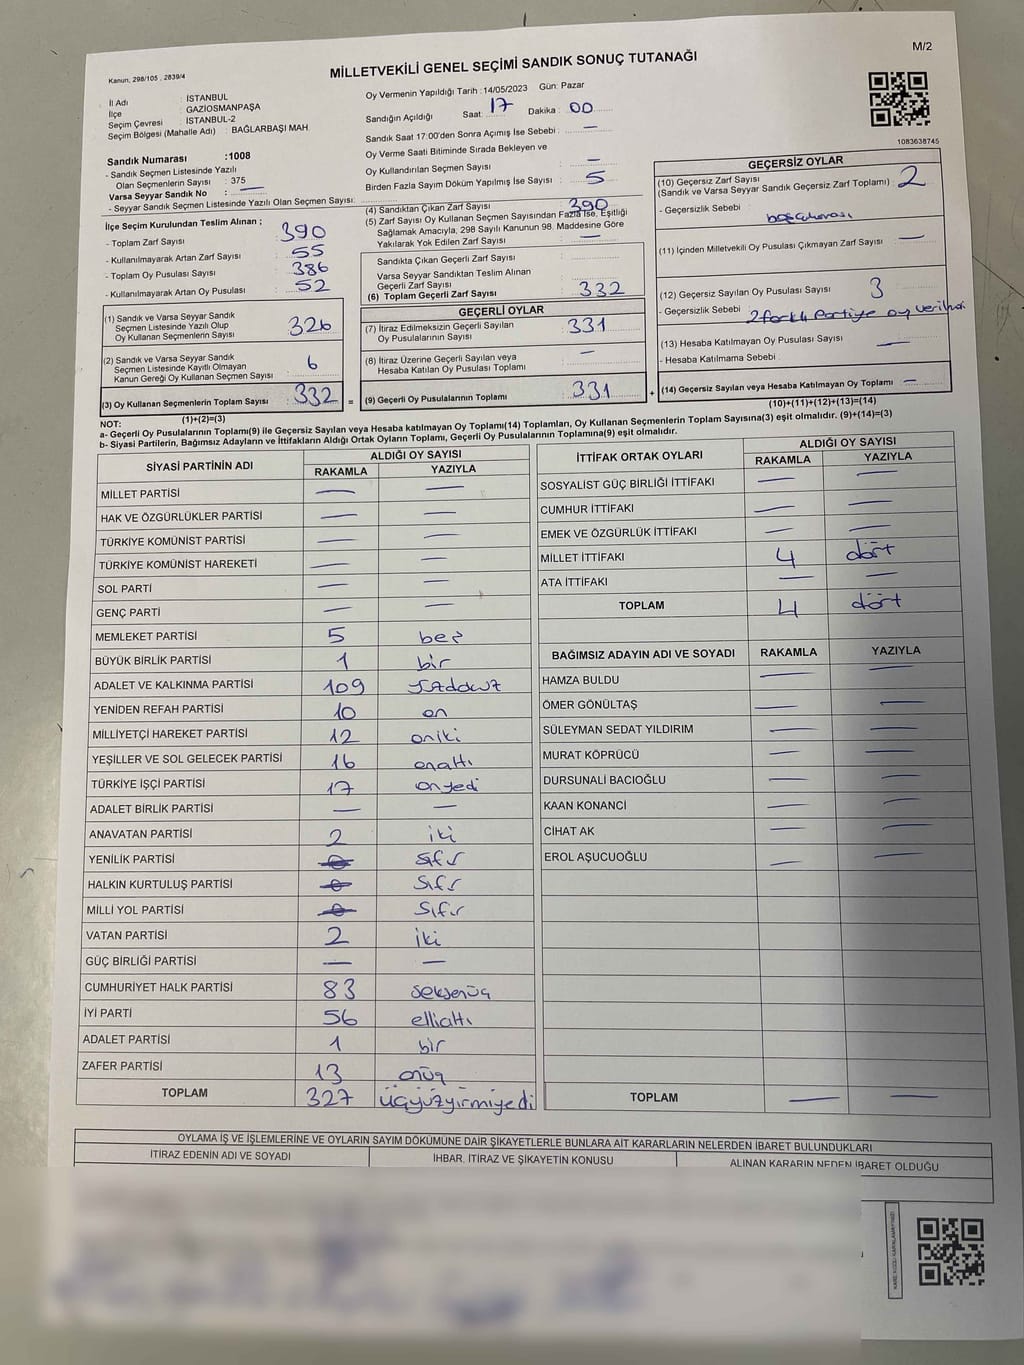 M/2
Kanun, 298/105 , 2839/4
MİLLETVEKİLİ GENEL SEÇİMİ SANDIK SONUÇ TUTANAĞI
İl Adı : İSTANBUL
İlçe : GAZİOSMANPAŞA
Seçim Çevresi : İSTANBUL-2
Seçim Bölgesi (Mahalle Adı) : BAĞLARBAŞI MAH.
Sandık Numarası :1008
- Sandık Seçmen Listesinde Yazılı
Olan Seçmenlerin Sayısı : 375
Varsa Seyyar Sandık No : —
- Seyyar Sandık Seçmen Listesinde Yazılı Olan Seçmen Sayısı:
Oy Vermenin Yapıldığı Tarih :14/05/2023 Gün: Pazar
Sandığın Açıldığı Saat: 17 Dakika : 00
Sandık Saat 17:00'den Sonra Açımış İse Sebebi : —
Oy Verme Saati Bitiminde Sırada Bekleyen ve
Oy Kullandırılan Seçmen Sayısı : —
Birden Fazla Sayım Döküm Yapılmış İse Sayısı : 5
İlçe Seçim Kurulundan Teslim Alınan ;
- Toplam Zarf Sayısı : 390
- Kullanılmayarak Artan Zarf Sayısı : 55
- Toplam Oy Pusulası Sayısı : 386
- Kullanılmayarak Artan Oy Pusulası : 52
(1) Sandık ve Varsa Seyyar Sandık
Seçmen Listesinde Yazılı Olup
Oy Kullanan Seçmenlerin Sayısı : 326
(2) Sandık ve Varsa Seyyar Sandık
Seçmen Listesinde Kayıtlı Olmayan
Kanun Gereği Oy Kullanan Seçmen Sayısı : 6
(3) Oy Kullanan Seçmenlerin Toplam Sayısı : 332 =
(1)+(2)=(3)
(4) Sandıktan Çıkan Zarf Sayısı : 390
(5) Zarf Sayısı Oy Kullanan Seçmen Sayısından Fazla İse, Eşitliği
Sağlamak Amacıyla, 298 Sayılı Kanunun 98. Maddesine Göre
Yakılarak Yok Edilen Zarf Sayısı : —
Sandıkta Çıkan Geçerli Zarf Sayısı :
Varsa Seyyar Sandıktan Teslim Alınan
Geçerli Zarf Sayısı :
(6) Toplam Geçerli Zarf Sayısı : 332
GEÇERLİ OYLAR
(7) İtiraz Edilmeksizin Geçerli Sayılan
Oy Pusulalarının Sayısı : 331
(8) İtiraz Üzerine Geçerli Sayılan veya
Hesaba Katılan Oy Pusulası Toplamı : —
(9) Geçerli Oy Pusulalarının Toplamı : 331 +
GEÇERSİZ OYLAR
1083638745
(10) Geçersiz Zarf Sayısı
(Sandık ve Varsa Seyyar Sandık Geçersiz Zarf Toplamı) : 2
- Geçersizlik Sebebi :
(11) İçinden Milletvekili Oy Pusulası Çıkmayan Zarf Sayısı : —
(12) Geçersiz Sayılan Oy Pusulası Sayısı : 3
- Geçersizlik Sebebi : 2 farklı Partiye oy verilmesi
(13) Hesaba Katılmayan Oy Pusulası Sayısı : —
- Hesaba Katılmama Sebebi :
(14) Geçersiz Sayılan veya Hesaba Katılmayan Oy Toplamı : —
(10)+(11)+(12)+(13)=(14)
NOT:
a- Geçerli Oy Pusulalarının Toplamı(9) ile Geçersiz Sayılan veya Hesaba katılmayan Oy Toplamı(14) Toplamları, Oy Kullanan Seçmenlerin Toplam Sayısına(3) eşit olmalıdır. (9)+(14)=(3)
b- Siyasi Partilerin, Bağımsız Adayların ve İttifakların Aldığı Ortak Oyların Toplamı, Geçerli Oy Pusulalarının Toplamına(9) eşit olmalıdır.
SİYASİ PARTİNİN ADI ALDIĞI OY SAYISI
RAKAMLA YAZIYLA
MİLLET PARTİSİ — —
HAK VE ÖZGÜRLÜKLER PARTİSİ — —
TÜRKİYE KOMÜNİST PARTİSİ — —
TÜRKİYE KOMÜNİST HAREKETİ — —
SOL PARTİ — —
GENÇ PARTİ — —
MEMLEKET PARTİSİ 5 beş
BÜYÜK BİRLİK PARTİSİ 1 bir
ADALET VE KALKINMA PARTİSİ 109 yüzdokuz
YENİDEN REFAH PARTİSİ 10 on
MİLLİYETÇİ HAREKET PARTİSİ 12 oniki
YEŞİLLER VE SOL GELECEK PARTİSİ 16 onaltı
TÜRKİYE İŞÇİ PARTİSİ 17 onyedi
ADALET BİRLİK PARTİSİ — —
ANAVATAN PARTİSİ 2 iki
YENİLİK PARTİSİ 0 sıfır
HALKIN KURTULUŞ PARTİSİ 0 sıfır
MİLLİ YOL PARTİSİ 0 sıfır
VATAN PARTİSİ 2 iki
GÜÇ BİRLİĞİ PARTİSİ — —
CUMHURİYET HALK PARTİSİ 83 seksenüç
İYİ PARTİ 56 ellialtı
ADALET PARTİSİ 1 bir
ZAFER PARTİSİ 13 onüç
TOPLAM 327 üçyüzyirmiyedi
İTTİFAK ORTAK OYLARI ALDIĞI OY SAYISI
RAKAMLA YAZIYLA
SOSYALİST GÜÇ BİRLİĞİ İTTİFAKI — —
CUMHUR İTTİFAKI — —
EMEK VE ÖZGÜRLÜK İTTİFAKI — —
MİLLET İTTİFAKI 4 dört
ATA İTTİFAKI — —
TOPLAM 4 dört
BAĞIMSIZ ADAYIN ADI VE SOYADI RAKAMLA YAZIYLA
HAMZA BULDU — —
ÖMER GÖNÜLTAŞ — —
SÜLEYMAN SEDAT YILDIRIM — —
MURAT KÖPRÜCÜ — —
DURSUNALİ BACIOĞLU — —
KAAN KONANCİ — —
CİHAT AK — —
EROL AŞUCUOĞLU — —
TOPLAM — —
OYLAMA İŞ VE İŞLEMLERİNE VE OYLARIN SAYIM DÖKÜMÜNE DAİR ŞİKAYETLERLE BUNLARA AİT KARARLARIN NELERDEN İBARET BULUNDUKLARI
İTİRAZ EDENİN ADI VE SOYADI İHBAR, İTİRAZ VE ŞİKAYETİN KONUSU ALINAN KARARIN NEDEN İBARET OLDUĞU